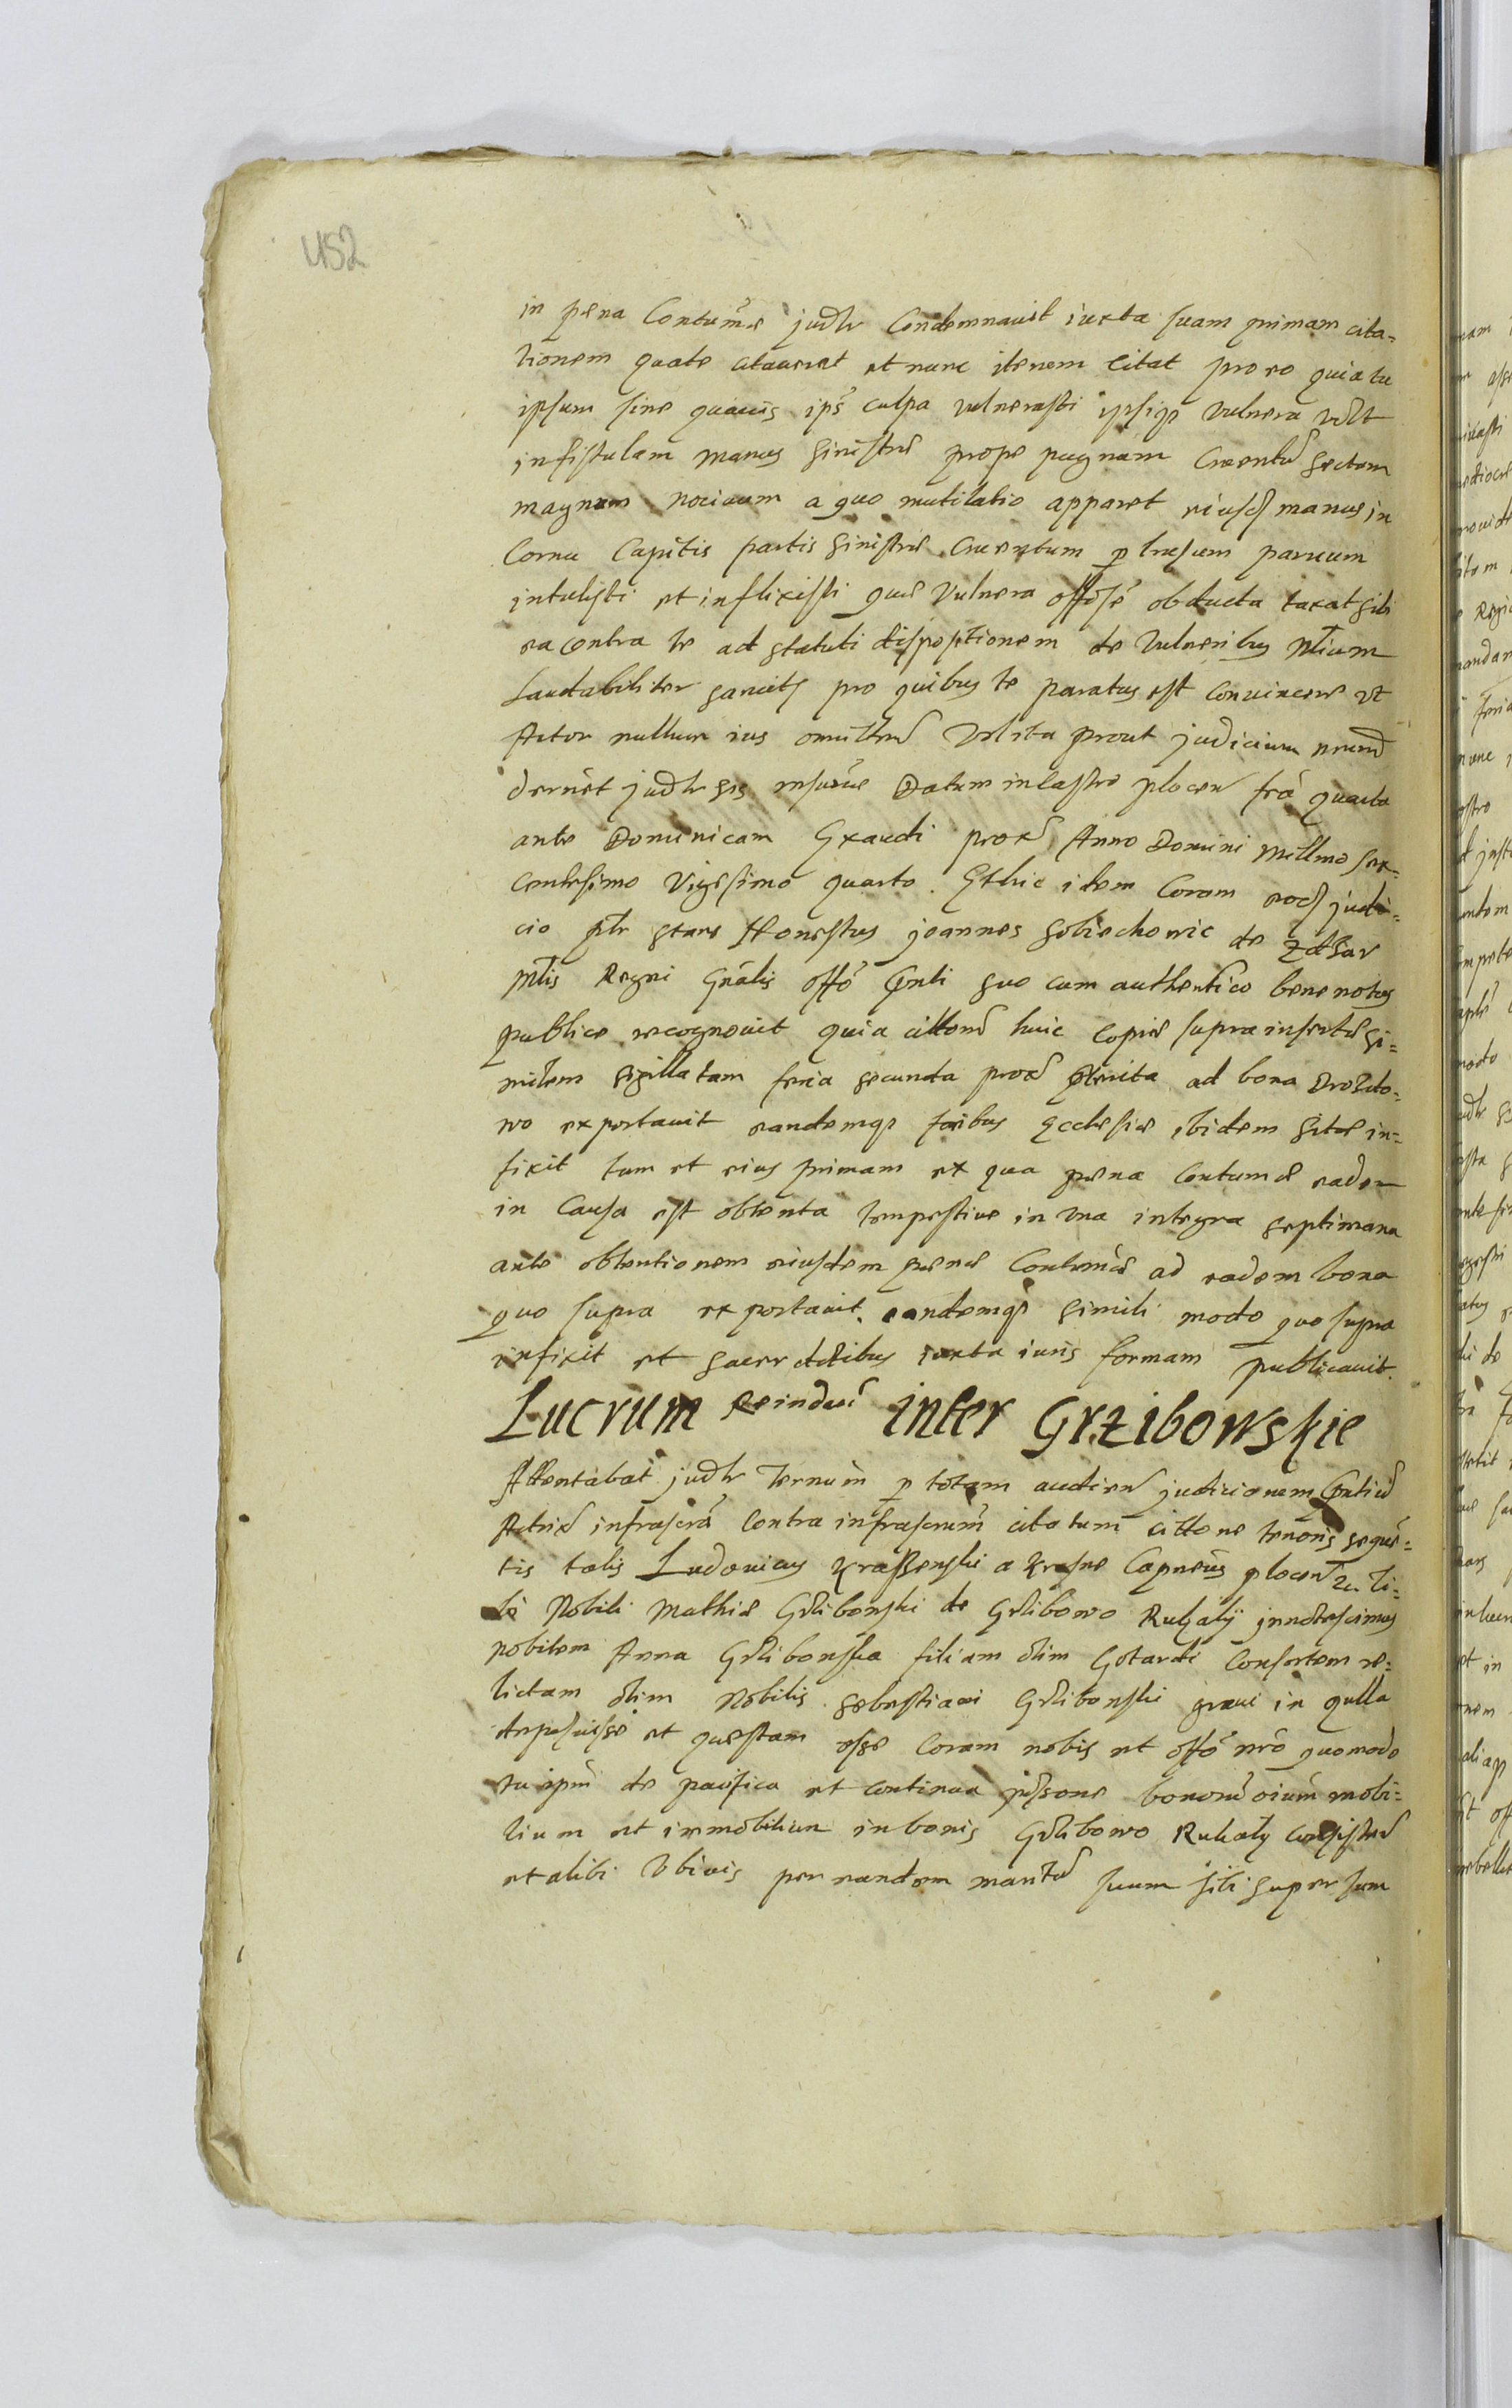 452
in pena Contumae judlr Condemnavit iuxta suam primam cita-
tionem quate citaverat et nunc iterum citat pro eo quia tu
ipsum sine quavis ips culpa vulnerasti ipsiqz vulnera vdlt
in fistulam manus sinistrae prope pugnam Cruentu sectum
magnum nocivum a quo mutilatio apparet eiusd manus in
Cornu Capitis partis sinistrae Cruentum p lusum parvum
intulisti et inflixisti quae Vulnera offose obducta taxat sibi
ea contra te ad statuti dispositionem de Vulneribus Nlium
Laudabiliter sancits pro quibus te paratus est convincere ut
Actor nullum ius omitten Vel ita prout judicium
dernet judlr sis Datum in Castro plocen fra quarta
ante Dominicam Exaudi prox Anno Domini Millmo sex-
centesimo Vigesimo quarto. Et hic idem Coram eod judi-
cio plr stans Honestus joannes Sobiechowic de
Mtis Regni Gnalis offo pnti suo cum authentico bene notus
publice recognovit quia cittone huic copiae supra insertae si-
milem sigillatam feria secunda prox pterita ad bona Drozdo-
wo exportavit eandemqz foribus Ecclesiae ibidem sitae in-
fixit tum et eius primam ex qua paena contumae eadem
in Causa est obtenta tempestive in una integra septimana
ante obtentionem eiusdem paenae Contumae ad eadem bona
quo supra exportavit eandemqz simili modo quo supra
infixit et sacerdotibus iuxta iuris formam publicavit.
Lucrum Reinduc inter Grzibowskie
Attentabat judlr Ternum p totam audien judicionem pntium
Actrix infrascra Contra infrascrum citatum cittone tenoris sequen-
tis talis Ludovicus Krassenski a Krasne Capneus plocen
Nobili Mathiae Grzibowski de Grzibowo Rukaly innotescimus
nobilem Anna Grzibowska filiam olim Gotardi Consortem re-
lictam olim Nobilis Sebastiani Grzibowski gravi in qulla
deposuisse et questam esse Coram nobis et offo nro quomodo
tu ipm de pacifica et continua pssone bonoru oium mobi-
lium et immobilium in bonis Grzibowo Rukaly consisten
et alibi Ubivis per eandem maritu suum sibi super sum